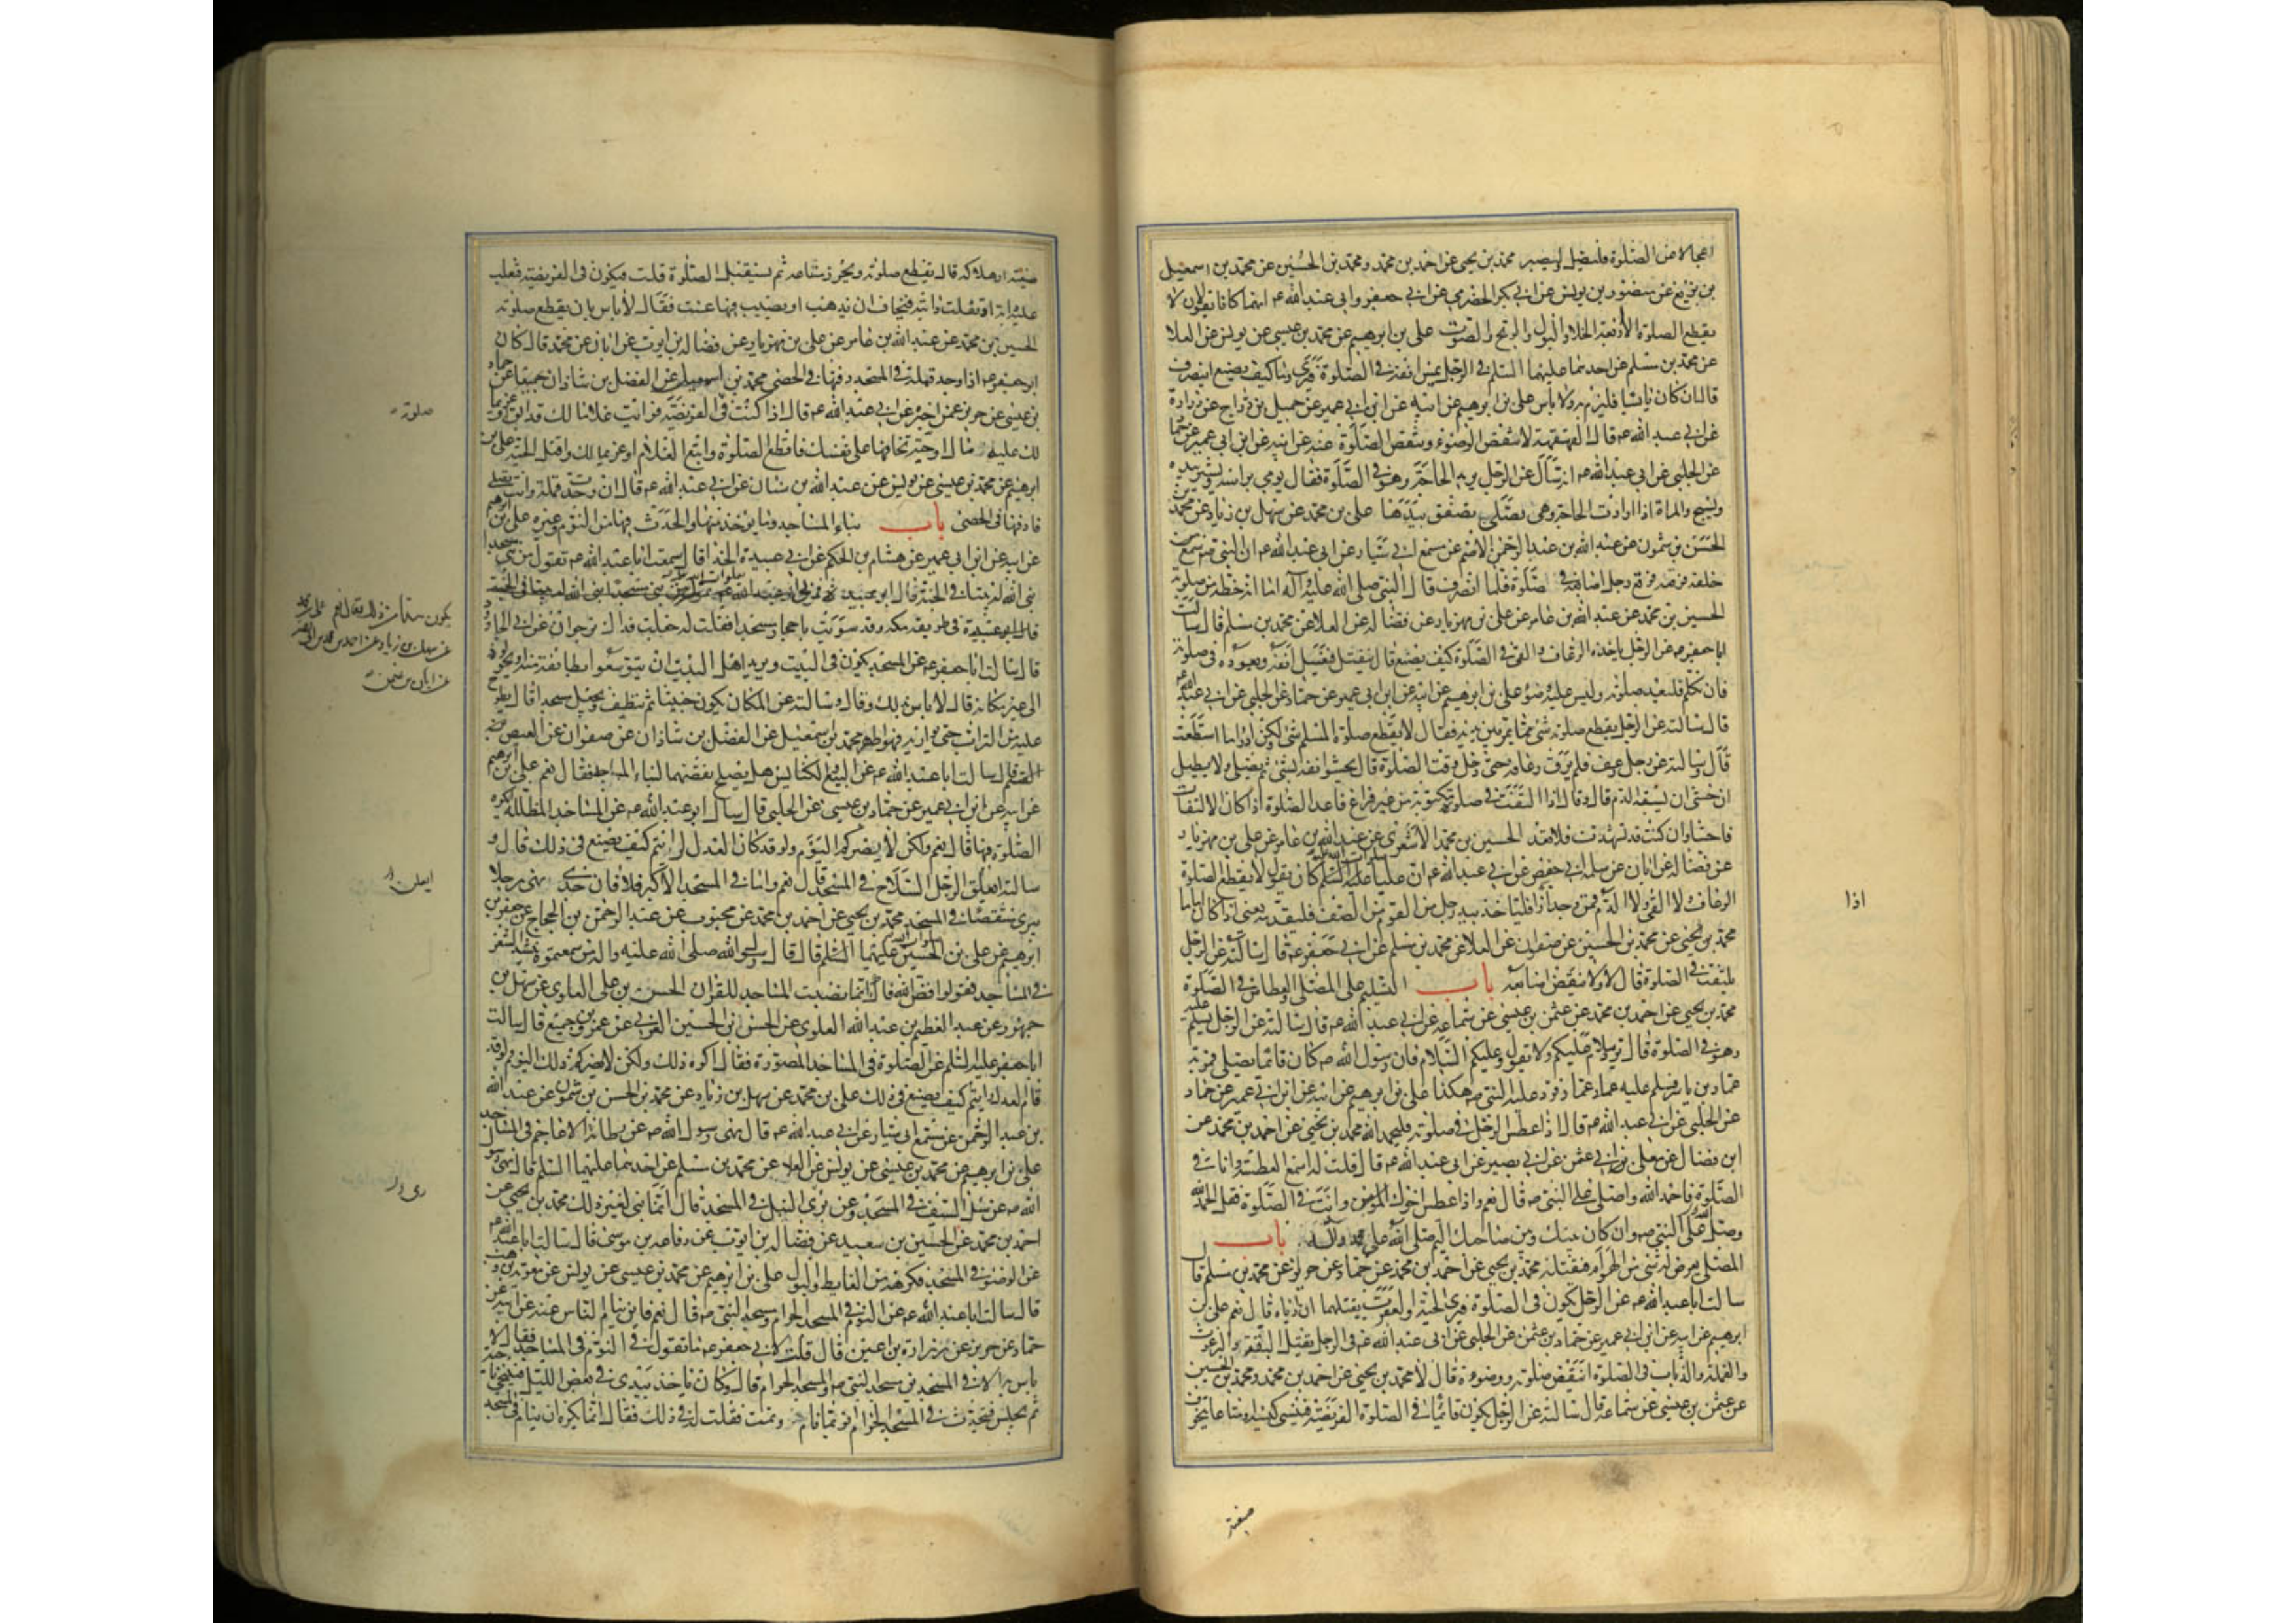 اعجالا عن الصلوة فليصل وليصبر محمد بن يحيى عن احمد بن محمد ومحمد بن الحسين عن محمد بن اسمعيل
بن بزيع عن منصور بن يونس عن ابي بكر الحضرمي عن ابي جعفر وابي عبد الله ع انهما كانا يقولان لا
يقطع الصلوة الا اربعة الخلاء والبول والريح والصوت علي بن ابرهيم عن محمد بن عيسى عن يونس عن العلا
عن محمد بن مسلم عن احدهما عليهما السلم في الرجل يمس انفه في الصلوة فيرى دما كيف يصنع اينصرف
قال ان كان يابسا فليرم به ولا باس علي بن ابرهيم عن ابيه عن ابن ابي عمير عن جميل بن دراج عن زرارة
عن ابي عبد الله ع قال القهقهة لا تنقض الوضوء وتنقض الصلوة عنه عن ابيه عن ابن ابي عمير عن حماد
عن الحلبي عن ابي عبد الله ع انه سأل عن الرجل يريد الحاجة وهو في الصلوة فقال يومي براسه ويشير بيده
ويسبح والمراة اذا ارادت الحاجة وهي تصلي تصفق بيدها علي بن محمد عن سهل بن زياد عن محمد بن
الحسن بن شمون عن عبد الله بن عبد الرحمن الاصم عن مسمع ابي سيار عن ابي عبد الله ع ان النبي ص سمع
خلفه فرقعة فرقع رجل اصابعه في صلوة فلما انصرف قال النبي صلى الله عليه وآله اما انه حظه من صلوته
الحسين بن محمد عن عبد الله بن عامر عن علي بن مهزيار عن فضالة عن العلا عن محمد بن مسلم قال سالت
ابا جعفر ع عن الرجل ياخذه الرعاف والقي في الصلوة كيف يصنع قال ينفتل فيغسل انفه ويعود في صلوته
فان تكلم فليعد صلوته وليس عليه وضوء علي بن ابرهيم عن ابيه عن ابن ابي عمير عن حماد عن الحلبي عن ابي عبد الله ع
قال سالته عن الرجل يقطع صلوته شئ مما يمر بين يديه فقال لا يقطع صلوة المسلم شئ ولكن ادرا ما استطعت
قال وسالته عن رجل رعف فلم يرق رعافه حتى دخل وقت الصلوة قال يحشوا انفه بشئ ثم يصلي ولا يطيل
ان خشي ان يسبقه الدم قال وقال اذا التفت في صلوة مكتوبة من غير فراغ فاعد الصلوة اذا كان الالتفات
فاحشا وان كنت قد تشهدت فلا تعد الحسين بن محمد الاشعري عن عبد الله بن عامر عن علي بن مهزيار
عن فضالة عن ابان عن سلمة ابي حفص عن ابي عبد الله ع ان عليا عليه السلم كان يقول لا يقطع الصلوة
الرعاف ولا القي ولا الدم فمن وجد ازا فلياخذ بيد رجل من القوم من الصف فليقدمه يعني اذا كان اماما
محمد بن يحيى عن محمد بن الحسين عن صفوان عن العلا عن محمد بن مسلم عن ابي جعفر ع قال سالته عن الرجل
يلتفت في الصلوة قال لا ولا ينقض اصابعه باب التسليم على المصلي والعطاس في الصلوة
محمد بن يحيى عن احمد بن محمد عن عثمن بن عيسى عن سماعة عن ابي عبد الله ع قال سالته عن الرجل يسلم عليه
وهو في الصلوة قال يرد سلام عليكم ولا تقول وعليكم السلام فان رسول الله ص كان قائما يصلي فمر به
عمار بن ياسر فسلم عليه عمار فرد عليه النبي ص هكذا علي بن ابرهيم عن ابيه عن ابن ابي عمير عن حماد
عن الحلبي عن ابي عبد الله ع قال اذا عطس الرجل في صلوته فليحمد الله محمد بن يحيى عن احمد بن محمد عن
ابن فضال عن معلى ابي عثمن عن ابي بصير عن ابي عبد الله ع قال قلت له اسمع العطسة وانا في
الصلوة فاحمد الله واصلي على النبي ص قال نعم واذا عطس اخوك المؤمن وانت في الصلوة فقل الحمد لله
وصل على النبي ص وان كان بينك وبين صاحبك اليم صلى الله على محمد وآله باب
المصلي يعرض له شئ من الهوام فيقتله محمد بن يحيى عن احمد بن محمد عن حماد عن حريز عن محمد بن مسلم قال
سالت ابا عبد الله ع عن الرجل يكون في الصلوة فيرى الحية او العقرب يقتلهما ان اذياه قال نعم علي بن
ابرهيم عن ابيه عن ابن ابي عمير عن حماد بن عثمن عن الحلبي عن ابي عبد الله ع في الرجل يقتل البقة والبرغوث
والقملة والذباب في الصلوة اينقض صلوته ووضوءه قال لا محمد بن يحيى عن احمد بن محمد ومحمد بن الحسين
عن عثمن بن عيسى عن سماعة قال سالته عن الرجل يكون قائما في الصلوة الفريضة فينسى كيسه او متاعا يتخوف
ضيعته
اذا
ضيعته او هلاكه قال يقطع صلوته ويحرز متاعه ثم يستقبل الصلوة قلت فيكون في الفريضة فتغلب
عليه دابة او تفلت دابته فيخاف ان تذهب او يصيب فيها عنت فقال لا باس بان يقطع صلوته
الحسين بن محمد عن عبد الله بن عامر عن علي بن مهزيار عن فضالة بن ايوب عن ابان عن محمد قال كان
ابو جعفر ع اذا وجد قملة في المسجد دفنها في الحصى محمد بن اسمعيل عن الفضل بن شاذان جميعا عن حماد
بن عيسى عن حريز عمن اخبره عن ابي عبد الله ع قال اذا كنت في الفريضة فرايت غلاما لك قد ابق او غريما
لك عليه مال او حية تخافها على نفسك فاقطع الصلوة واتبع الغلام او غريما لك واقتل الحية علي بن
ابرهيم عن محمد بن عيسى عن يونس عن عبد الله بن سنان عن ابي عبد الله ع قال ان وجدت قملة وانت تصلي
فادفنها في الحصى باب بناء المساجد وما يوخذ منها والحدث فيها من النوم وغيره علي بن ابرهيم
عن ابيه عن ابن ابي عمير عن هشام بن الحكم عن ابي عبيدة الحذا قال سمعت ابا عبد الله ع يقول من بنى مسجدا
بنى الله له بيتا في الجنة قال ابو عبيدة فمر بي ابو عبد الله
قال ابو عبيدة في طريق مكة وقد سويت باحجار مسجدا فقلت له جعلت فداك نرجو ان عن ابي الجارود
قال سالت ابا جعفر ع عن المسجد يكون في البيت ويريد اهل البيت ان يتوسعوا بطائفة منه او يحولوه
الى غير مكانه قال لا باس بذلك وقال وسالته عن المكان يكون خبيثا ثم ينظف ويجعل مسجدا قال يطرح
عليه من التراب حتى يواريه فهو اطهر محمد بن اسمعيل عن الفضل بن شاذان عن صفوان عن العيص بن
القسم قال سالت ابا عبد الله ع عن البيع والكنايس هل يصلح نقضهما لبناء المساجد فقال نعم علي بن ابرهيم
عن ابيه عن ابن ابي عمير عن حماد بن عيسى عن الحلبي قال سال ابو عبد الله ع عن المساجد المظللة يكره
الصلوة فيها قال نعم ولكن لا يضركم اليوم ولو قد كان العدل لرايتم كيف يصنع في ذلك قال و
سالته ايعلق الرجل السلاح في المسجد قال نعم واما في المسجد الاكبر فلا فان جدي نهى رجلا
يبرى مشقصا في المسجد محمد بن يحيى عن احمد بن محمد عن محبوب عن عبد الرحمن بن الحجاج عن جعفر بن
ابرهيم عن علي بن الحسين عليهما السلم قال قال رسول الله صلى الله عليه واله من سمعتموه ينشد الشعر
في المساجد فقولوا فض الله فاك انما نصبت المساجد للقران الحسن بن علي العلوي عن سهل بن
جمهور عن عبد العظيم بن عبد الله العلوي عن الحسن بن الحسين العرني عن عمرو بن جميع قال سالت
ابا جعفر عليه السلم عن الصلوة في المساجد المصورة فقال اكره ذلك ولكن لا يضركم ذلك اليوم ولو قد
قام العدل لرايتم كيف يصنع في ذلك علي بن محمد عن سهل بن زياد عن محمد بن الحسن بن شمون عن عبد الله
بن عبد الرحمن عن مسمع ابي سيار عن ابي عبد الله ع قال نهى رسول الله ص عن رطانة الاعاجم في المساجد
علي بن ابرهيم عن محمد بن عيسى عن يونس عن العلا عن محمد بن مسلم عن احدهما عليهما السلم قال نهى رسول
الله ص عن سل السيف في المسجد وعن بري النبل في المسجد قال انما بني لغير ذلك محمد بن يحيى عن
احمد بن محمد عن الحسين بن سعيد عن فضالة بن ايوب عن رفاعة بن موسى قال سالت ابا عبد الله ع
عن الوضوء في المسجد فكرهه من الغايط والبول علي بن ابرهيم عن محمد بن عيسى عن يونس عن معوية بن وهب
قال سالت ابا عبد الله ع عن النوم في المسجد الحرام ومسجد النبي ص قال نعم فاين ينام الناس عنه عن ابيه عن
حماد عن حريز عن زرارة بن اعين قال قلت لابي جعفر ع ما تقول في النوم في المساجد فقال لا
باس به الا في المسجدين مسجد النبي ص والمسجد الحرام قال وكان ياخذ بيدي في بعض الليل فيتنحى ناحية
ثم يجلس فيتحدث في المسجد الحرام فربما نام ونمت فقلت له في ذلك فقال انما يكره ان ينام في المسجد
صلوته
يكون هذا من ذلك فقال نعم علي بن محمد
عن سهل بن زياد عن احمد بن محمد بن ابي نصر
عن ابان بن عثمن
ايعلق